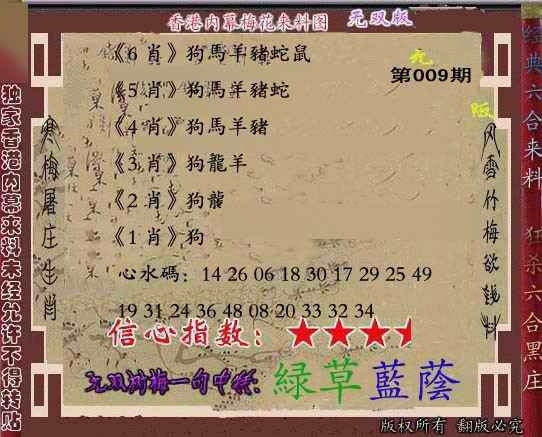 香港内幕梅花来料图 无双版
《6 肖》狗馬羊豬蛇鼠
无
第009期
《5 肖》狗馬羊豬蛇
版
《4 肖》狗馬羊豬
《3 肖》狗龍羊
《2 肖》狗龍
《1 肖》狗
心水碼：14 26 06 18 30 17 29 25 49
19 31 24 36 48 08 20 33 32 34
信心指数：
无双浏梅一句中特：綠草藍蔭
版权所有 翻版必究
独家香港内幕来料未经允许不得转贴
寒梅屠庄生肖
风雪竹梅欲钱料
经典六合来料 狂杀六合黑庄